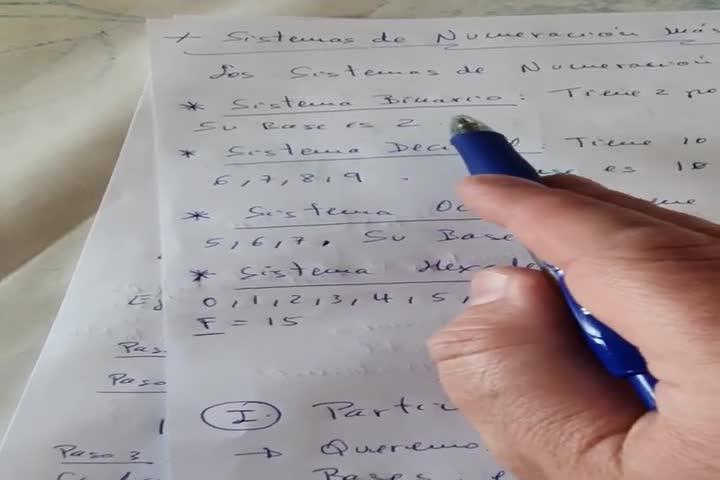 + Sistemas de Numeración Más
Los Sistemas de Numeración
* Sistema Binario: Tiene 2 po
Su Base es 2
* Sistema Dec : Tiene 10
6, 7, 8, 9 . es 10
* Sistema Oc
5, 6, 7, Su Base
* Sistema Hexade
0, 1, 2, 3, 4, 5,
F = 15
Ej
Paso
Paso
I. Parti
→ Queremo
Paso 3
Bases